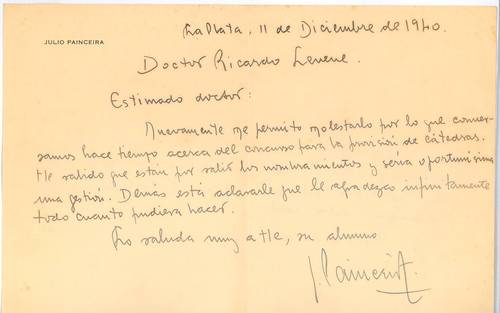 JULIO PAINCEIRA
La Plata, 11 de Diciembre de 1940.
Doctor Ricardo Levene.
Estimado doctor:
Nuevamente me permito molestarlo por lo que conver-
samos hace tiempo acerca del concurso para la provisión de cátedras.
He sabido que están por salir los nombramientos y sería oportunísima
una gestión. Demás está aclararle que le agradezco infinitamente
todo cuanto pudiera hacer.
Lo saluda muy atte, su alumno
J. Painceira